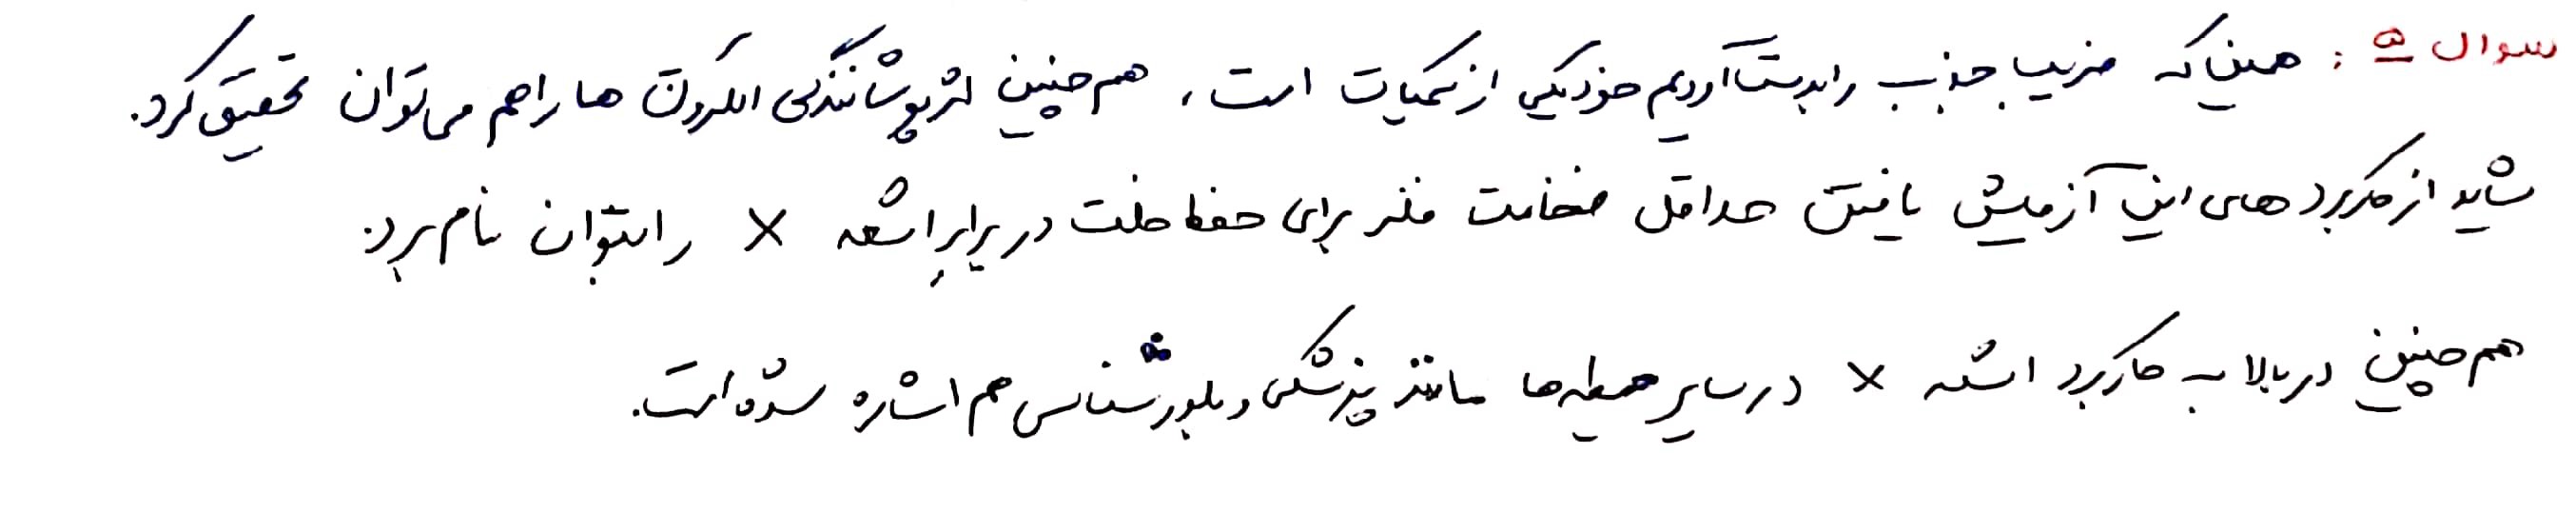 سوال ۵ : همین که ضریب جذب را بدست آوردیم خود یکی از کمیات است، هم چنین اثر پوشانندگی الکترون ها را هم می توان تحقیق کرد.
شاید از کاربرد های این آزمایش یافتن حداقل ضخامت فلز برای حفاظت در برابر اشعه X را بتوان نام برد.
هم چنین در بالا به کاربرد اشعه X در سایر حیطه ها مانند پزشکی و بلورشناسی هم اشاره شده است.